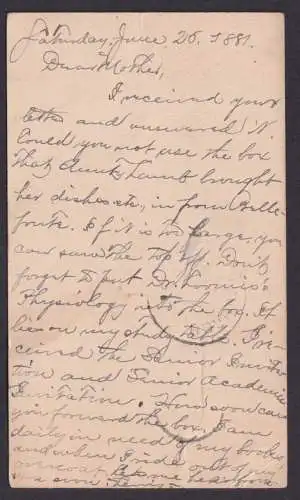 Saturday, June 25, 1881.
Dear Mother,
I received your
letter and answered it.
Could you not use the box
that Aunty brought
her dishes etc., in from Belle-
fonte. If it is too large, you
can saw the top off. Don't
forget to put Dr. Loomis's
Physiology into the box. It
lies on my study table. I re-
ceived the Senior Invita-
tion and Senior Academic
Invitation. How soon can
you forward the box. I am
daily in need of my books,
and when I ride out of my
overcoat. hear from
soon.